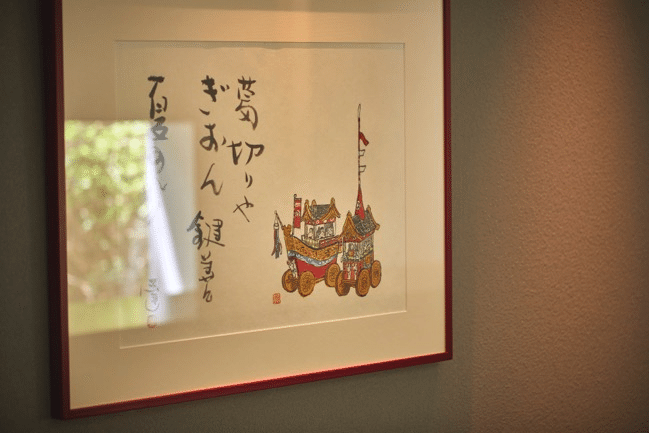 葛切りや
ぎおん 鍵善
夏の